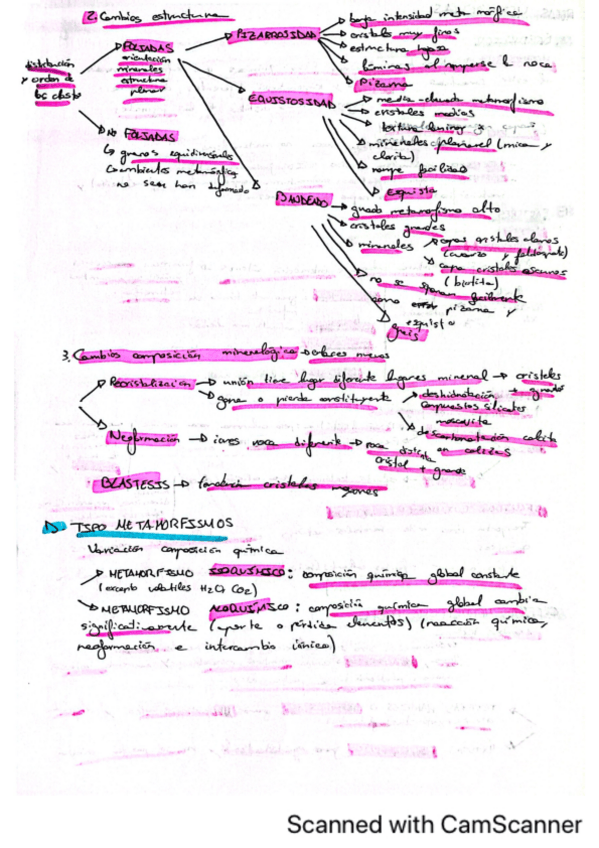 2. Cambios estructura
distribución y orden de los clastos
FOLIADAS
orientación
minerales
estructura
planar
PIZARROSIDAD
baja intensidad metamórfica
cristales muy finos
estructura hojosa
láminas al romperse la roca
Pizarra
ESQUISTOSIDAD
medio-elevado metamorfismo
cristales medios
textura laminar
minerales planares (mica y
clorita)
rompe facilidad
esquisto
NO FOLIADAS
granos equidimensionales
no se han deformado
BANDEADO
grado metamorfismo alto
cristales grandes
minerales
capas cristales claros
(cuarzo y feldespato)
capa cristales oscuros
(biotita)
no se separan fácilmente
como pizarra y
esquisto
gneis
3. Cambios composición mineralógica → enlaces nuevos
Recristalización → unión tiene lugar diferente lugares mineral → cristales
+ grandes
gana o pierde constituyente
deshidratación
compuestos silicatos
moscovita
descarbonatación calcita
en calizas
Neoformación → iones roca diferente → roca distinta
cristal + grande
BLASTESIS → cristales mayores
TIPO METAMORFISMOS
Variación composición química
METAMORFISMO ISOQUÍMICO: composición química global constante
(excepto volátiles H2O CO2)
METAMORFISMO ALOQUÍMICO: composición química global cambia
significativamente (aporte o pérdida elementos) (reacción química,
neoformación e intercambio iónico)
Scanned with CamScanner